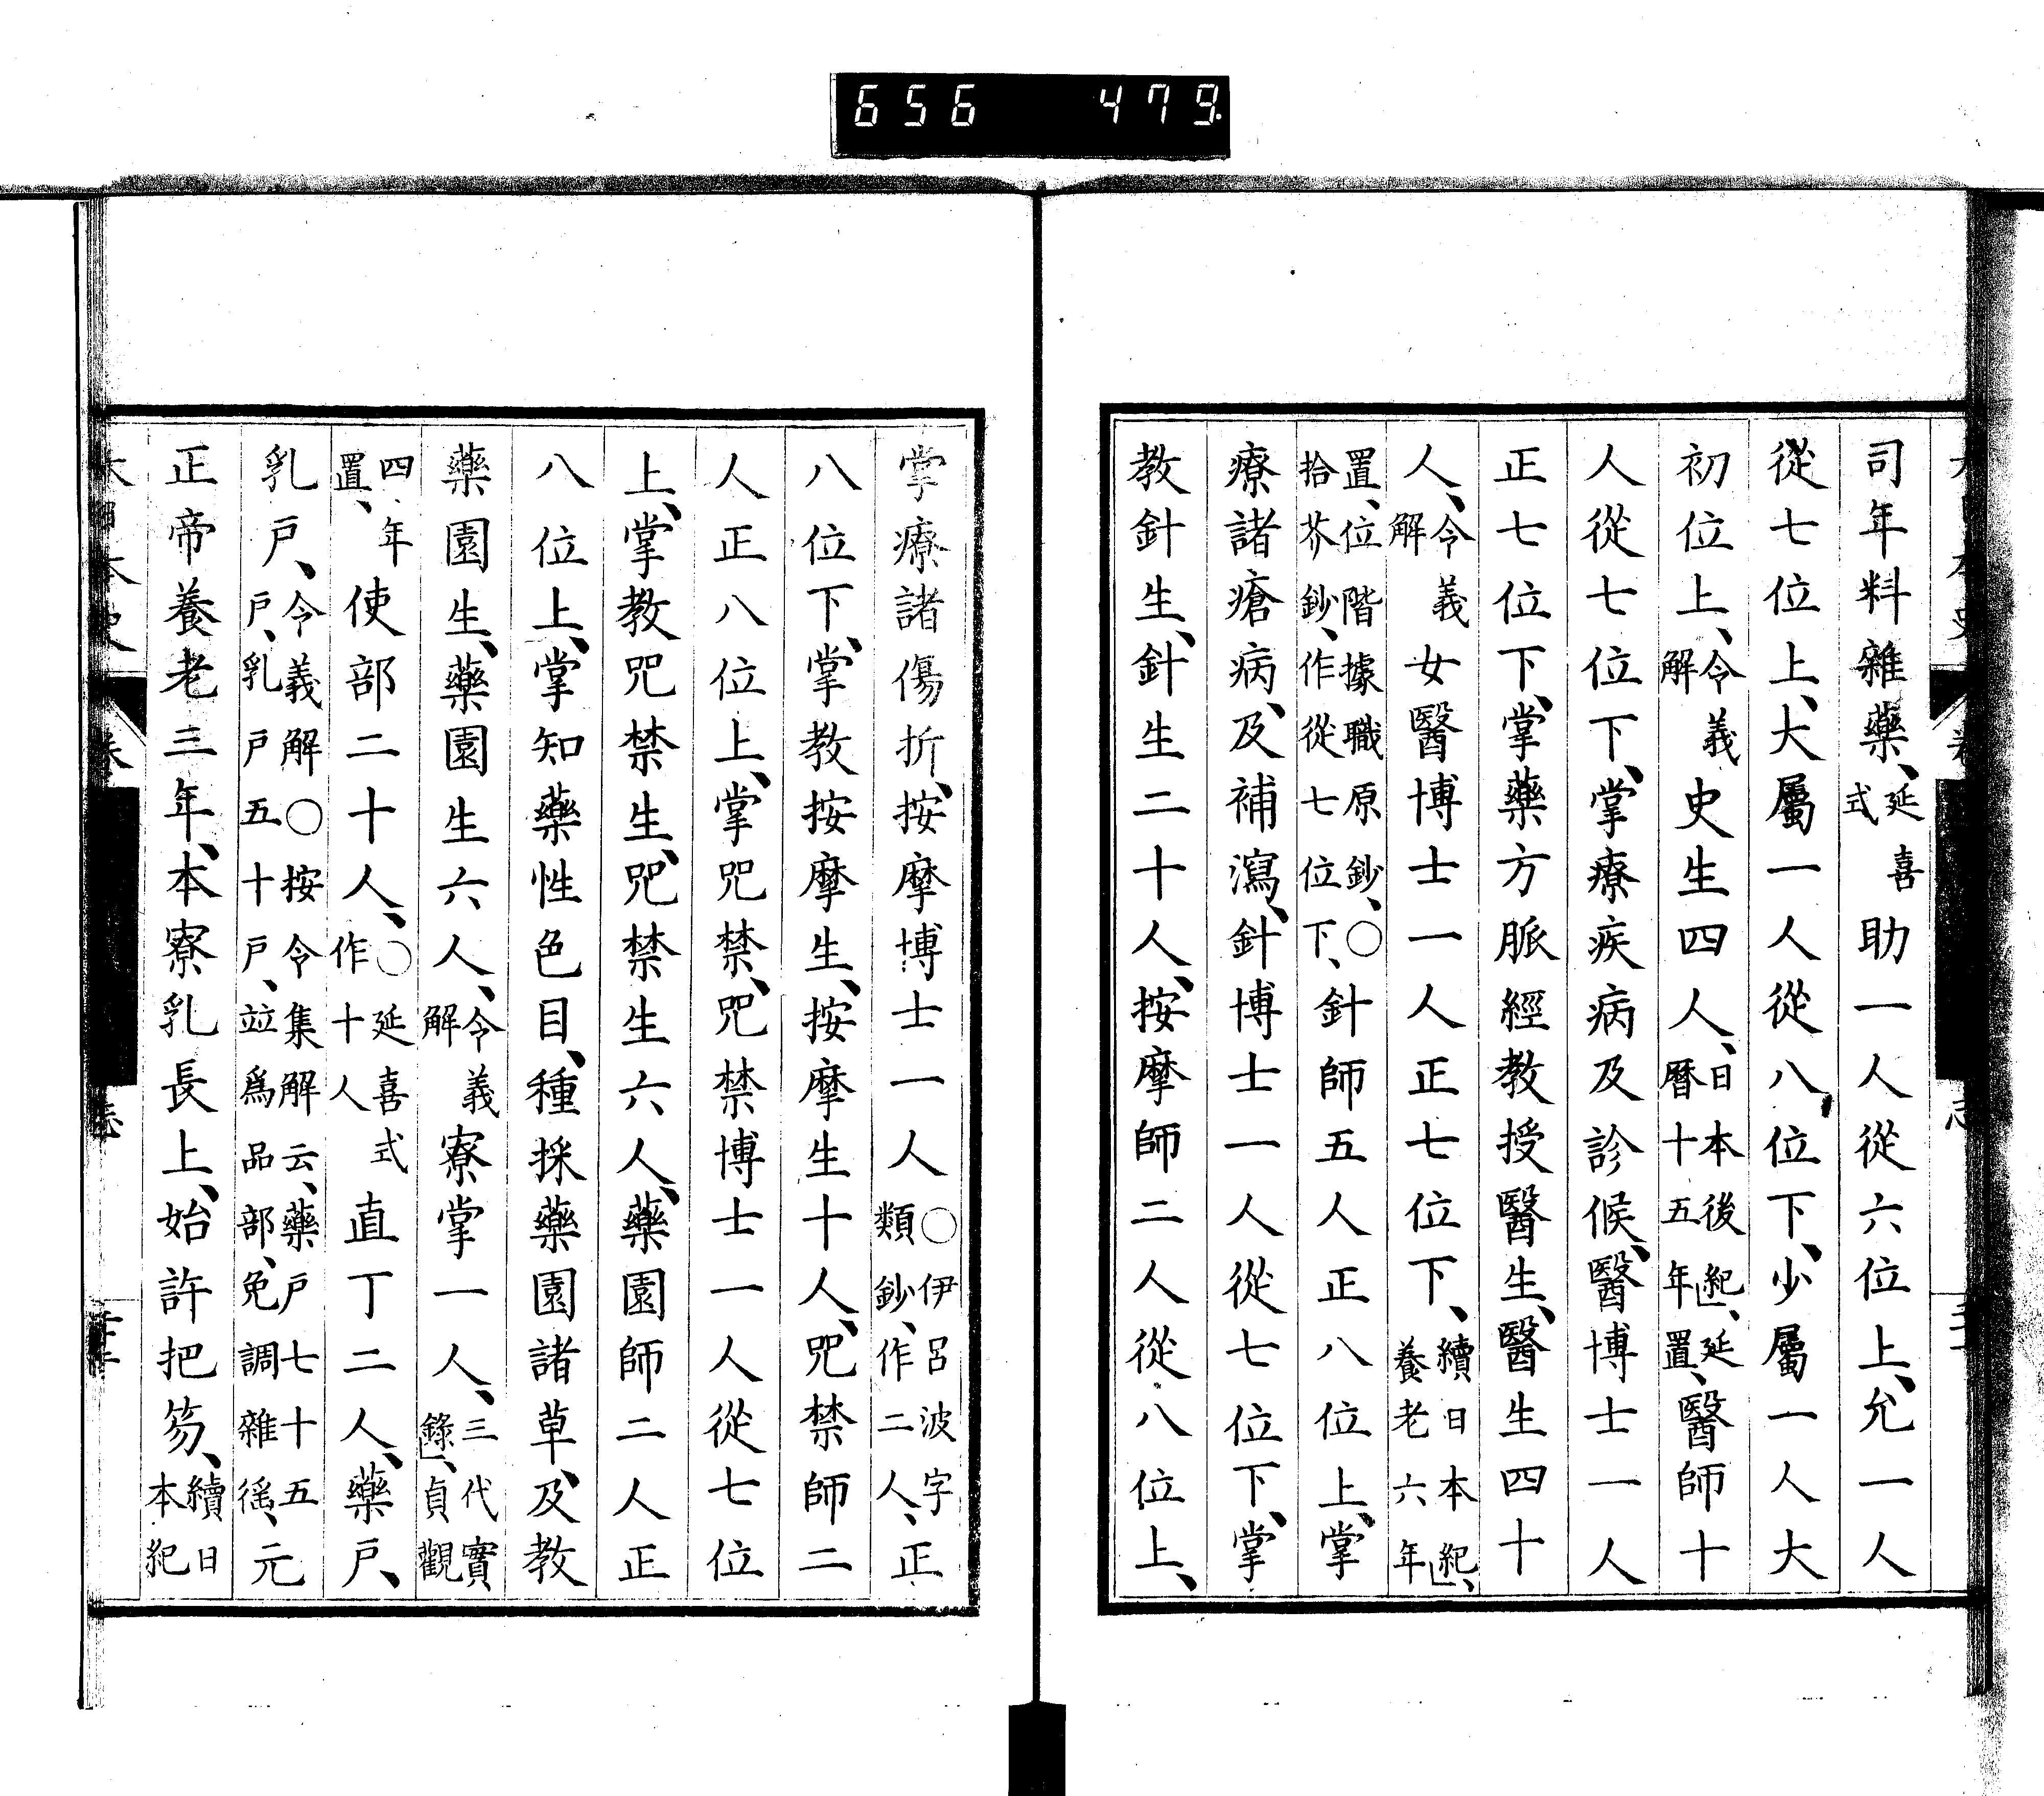 656 479
司年料雜藥、延喜式助一人從六位上、允一人
從七位上、大屬一人從八位下、少屬一人大
初位上、令義解史生四人、日本後紀、延曆十五年置、醫師十
人從七位下、掌療疾病及診候、醫博士一人
正七位下、掌藥方脈經教授醫生、醫生四十
人、令義解女醫博士一人正七位下、續日本紀、養老六年
置、位階據職原鈔、〇拾芥鈔、作從七位下、針師五人正八位上、掌
療諸瘡病、及補瀉、針博士一人從七位下、掌
教針生、針生二十人、按摩師二人從八位上、
掌療諸傷折、按摩博士一人〇伊呂波字類鈔、作二人、正
八位下、掌教按摩生、按摩生十人、咒禁師二
人正八位上、掌咒禁、咒禁博士一人從七位
上、掌教咒禁生、咒禁生六人、藥園師二人正
八位上、掌知藥性色目、種採藥園諸草、及教
藥園生、藥園生六人、令義解寮掌一人、三代實錄、貞觀
四年置、使部二十人、〇延喜式作十人直丁二人、藥戶、
乳戶、令義解〇按令集解云、藥戶七十五戶、乳戶五十戶、竝爲品部、免調雜徭、元
正帝養老三年、本寮乳長上、始許把笏、續日本紀